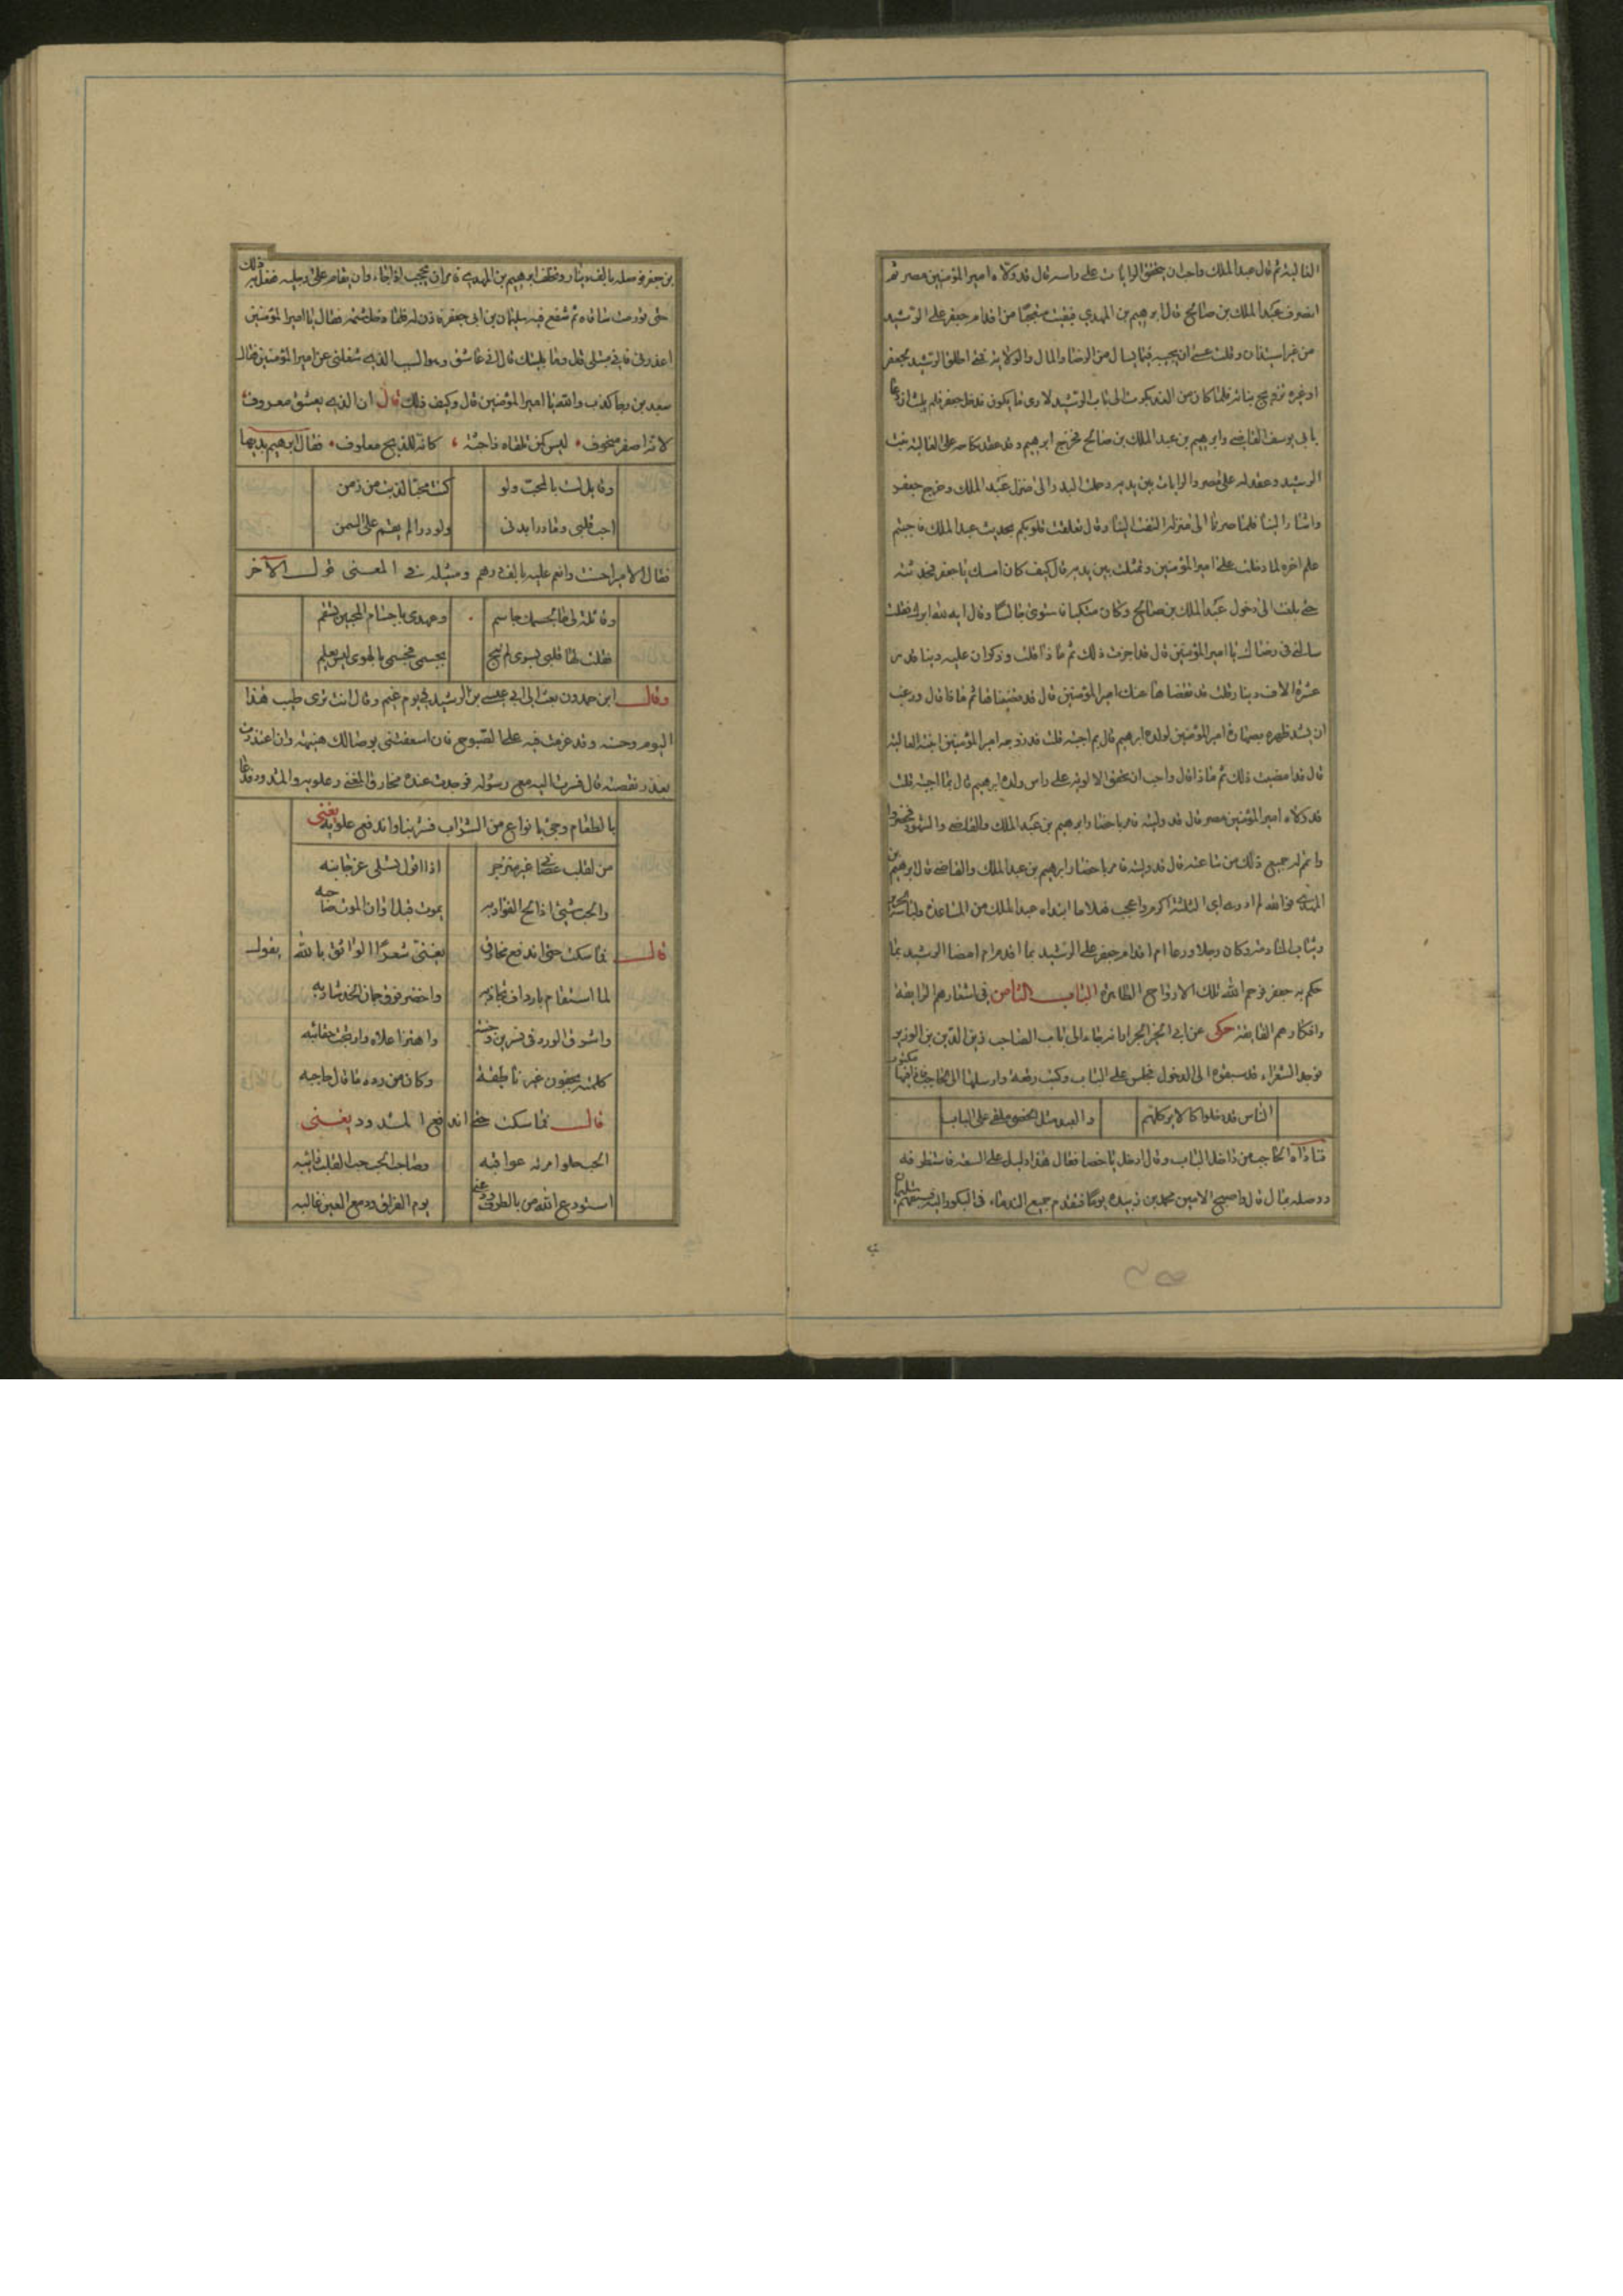 العالية ثم قال عبد الملك واحب ان يخفق الرايات على راسه قال قد ولاه امير المؤمنين مصر ثم
انصرف عبد الملك بن صالح قال ابرهيم بن المهدي فبقيت متعجبا من اقدام جعفر على الرشيد
من غير استيذان وقلت عسى ان يجيبه فيما يسال من الرضا والمال والولاية فمتى اطلق الرشيد لجعفر
او غيره تزويج بناته فلما كان من الغد بكرت الى باب الرشيد لارى ما يكون فدخل جعفر فلم يلبث ان دعا
بابي يوسف القاضي وابرهيم بن عبد الملك بن صالح فخرج ابرهيم وقد عقد نكاحه على العالية بنت
الرشيد وعقد له على مصر والرايات بين يديه وحملت البدر الى منزل عبد الملك وخرج جعفر
واشار الينا فلما صرنا الى منزله التفت الينا وقال تعلقت قلوبكم بحديث عبد الملك فاحببتم
علم اخره لما دخلت على امير المؤمنين وتمثلت بين يديه قال كيف كان امسك يا جعفر فحدثته
حتى بلغت الى دخول عبد الملك بن صالح وكان متكيا فاستوى جالسا وقال ايه لله ابوك فقلت
سالني في رضاك يا امير المؤمنين قال قد اجزت ذلك ثم ما ذا قلت وذكر ان عليه دينا قدره
عشرة الاف دينار قلت قد قضاها عنك امير المؤمنين قال قد قضيناها ثم ما ذا قال ورغب
ان يشد ظهره بمصاهرة امير المؤمنين لولده ابرهيم قال بم اجبته قلت قد زوجه امير المؤمنين ابنته العالية
قال قد امضيت ذلك ثم ما ذا قال واحب ان يخفق الالوية على راس ولده ابرهيم قال بما اجبته قلت
قد ولاه امير المؤمنين مصر قال قد وليته فامر باحضار ابرهيم بن عبد الملك والقاضي والشهود فحضروا
واتم له جميع ذلك من ساعته قال قد وليته فامر باحضار ابرهيم بن عبد الملك والقاضي قال ابرهيم بن
المهدي فوالله لم ادر اي الثلثة اكرم واعجب فعلا ما ابتداه عبد الملك من المساعدة
وثياب المنادمة وكان رجلا ورعا ام اقدام جعفر على الرشيد بما اقدم ام امضا الرشيد بما
حكم به جعفر فرحم الله تلك الارواح الطاهرة الباب الثامن في اشعارهم الرايقة
وافكارهم الفايقة حكى عن ابي الجزار انه جاء الى باب الصاحب زين الدين بن الوزير
فوجد الشعراء قد سبقوه الى الدخول فجلس على الباب وكتب رقعة وارسلها الى الحاجب فاذا فيها مكتوب
الناس قد دخلوا كالاير كلهم والعبد مثل الخصى ملقى على الباب
فناداه الحاجب من داخل الباب وقال ادخل يا خصا فقال هذا دليل على السعة فاستظرفه
ووصله بمال قال واصبح الامين محمد بن زبيدة يوما فتقدم جميع الندماء في البكور اليه
بن جعفر فوصله بالف دينار وتخلف ابرهيم بن المهدي فامر ان يحجب اذا جاء وان يقام على رجليه ففعل به ذلك
حتى تورمت ساقاه ثم شفع فيه سليمان بن ابي جعفر فاذن له فلما دخل شتمه فقال يا امير المؤمنين
اعذر في فاني مبتلى قال وما بليتك قال اني عاشق وهو السبب الذي شغلني عن امير المؤمنين فقال
سعيد بن رجا كذب والله يا امير المؤمنين قال وكيف ذلك قال ان الذي يعشق معروف
لانه اصفر منحوف ليس كمن تلقاه ذا جثة كانه للذبح معلوف فقال ابرهيم بديها
وقايل لست بالمحب ولو كنت محبا لذبت من زمن
احب قلبي وما درى بدني ولو درى لم يقم على السمن
فقال الامير احسنت وانعم عليه بالف درهم ومثله في المعنى قول الآخر
وقائلة لي ما لجسمك سالم وعهدي باجسام المحبين تسقم
فقلت لها قلبي يسوى لم يبح بجسمي فجسمي بالهوى ليس يعلم
وقال ابن حمدون بعث الي ابي عيسى بن الرشيد في يوم غيم وقال انت ترى طيب هذا
اليوم وحسنه وقد عزمت فيه على الصبوح فان اسعفتني بوصالك هنيته وان اعتذرت
بعذر نغصته قال فسرت اليه مع رسوله فوجدت عنده مخارق المغني وعلويه والمشدود فدعا
بالطعام وجئ بانواع من الشراب فشربنا واندفع علويه يغني
من لقلب غير منزجر اذا اقول تسلى عز جانبه
والحب شيئ اذا لح الفؤاد به يموت قبل اوان الموت صاحبه
قال فما سكت حتى اندفع مخارق يغني شعرا الواثق بالله يقول
لما استقام بارداف تجاذبه واخضر فوق جمان الخد شاربه
واشرق الورد في نسرين وجنته واهتز اعلاه وارتجت حقائبه
كلمته بجفون غير ناطقة وكان من رده ما قال حاجبه
قال فما سكت حتى اندفع المشدود يغني
الحب حلو امرته عواقبه وصاحب الحب صب القلب ذائبه
استودع الله من بالطرف ودعني يوم الفراق ودمع العين غالبه